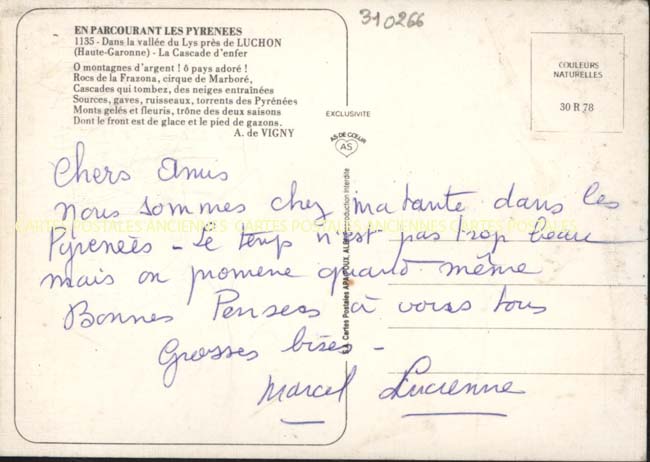 310266
EN PARCOURANT LES PYRENEES
1135 - Dans la vallée du Lys près de LUCHON
(Haute-Garonne) - La Cascade d'enfer
O montagnes d'argent ! ô pays adoré !
Rocs de la Frazona, cirque de Marboré,
Cascades qui tombez, des neiges entraînées
Sources, gaves, ruisseaux, torrents des Pyrénées
Monts gelés et fleuris, trône des deux saisons
Dont le front est de glace et le pied de gazons.
A. de VIGNY
EXCLUSIVITE
AS DE CŒUR
AS
COULEURS
NATURELLES
30 R 78
Chers Amis
nous sommes chez ma tante dans les
Pyreneés - le temps n'est pas trop beau
mais on promene quand même
Bonnes Penseés à vous tous
Grosses bises -
Marcel Lucienne
CARTES POSTALES ANCIENNES CARTES POSTALES ANCIENNES CARTES POSTALES
Cartes Postales APA-POUX, ALBI
Reproduction Interdite